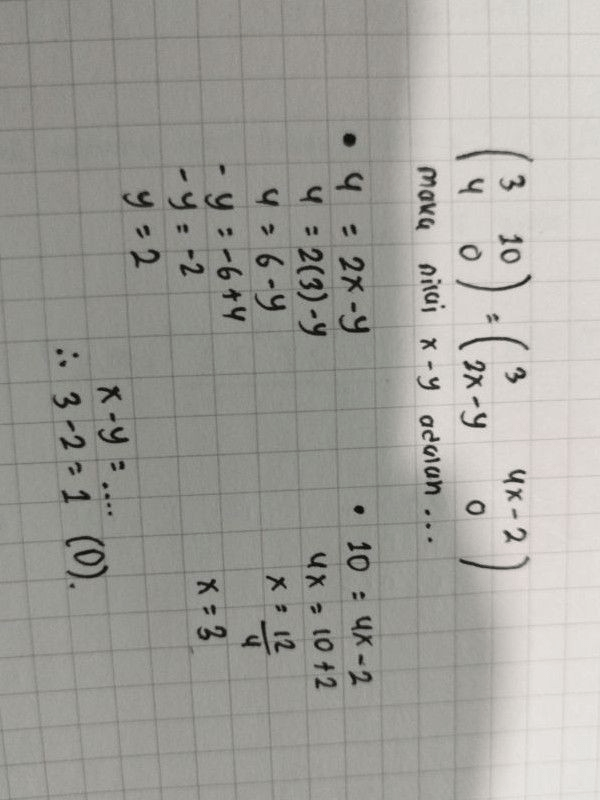 ( 3 10 ) = ( 3 4x-2 )
( 4 0 ) ( 2x-y 0 )
maka nilai x-y adalah ...
• 4 = 2x-y
4 = 2(3)-y
4 = 6-y
-y = -6+4
-y = -2
y = 2
• 10 = 4x-2
4x = 10+2
x = 12/4
x = 3
x-y = ....
∴ 3-2 = 1 (D).